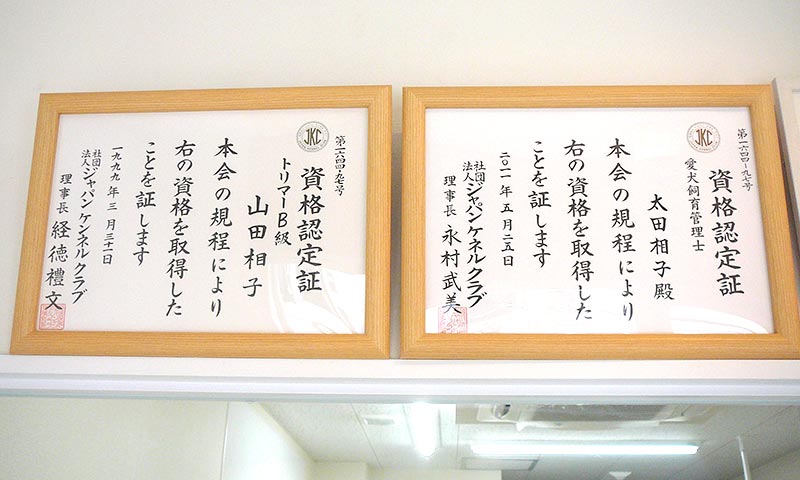 第一六四四-九七号
資格認定証
愛犬飼育管理士
太田相子殿
本会の規程により
右の資格を取得した
ことを証します
二〇一一年五月二五日
社団法人ジャパンケネルクラブ
理事長 永村武美
JKC
第一六四四-九七号
資格認定証
トリマーB級
山田相子
本会の規程により
右の資格を取得した
ことを証します
一九九九年三月三十一日
社団法人ジャパンケンネルクラブ
理事長 経徳禮文
JKC